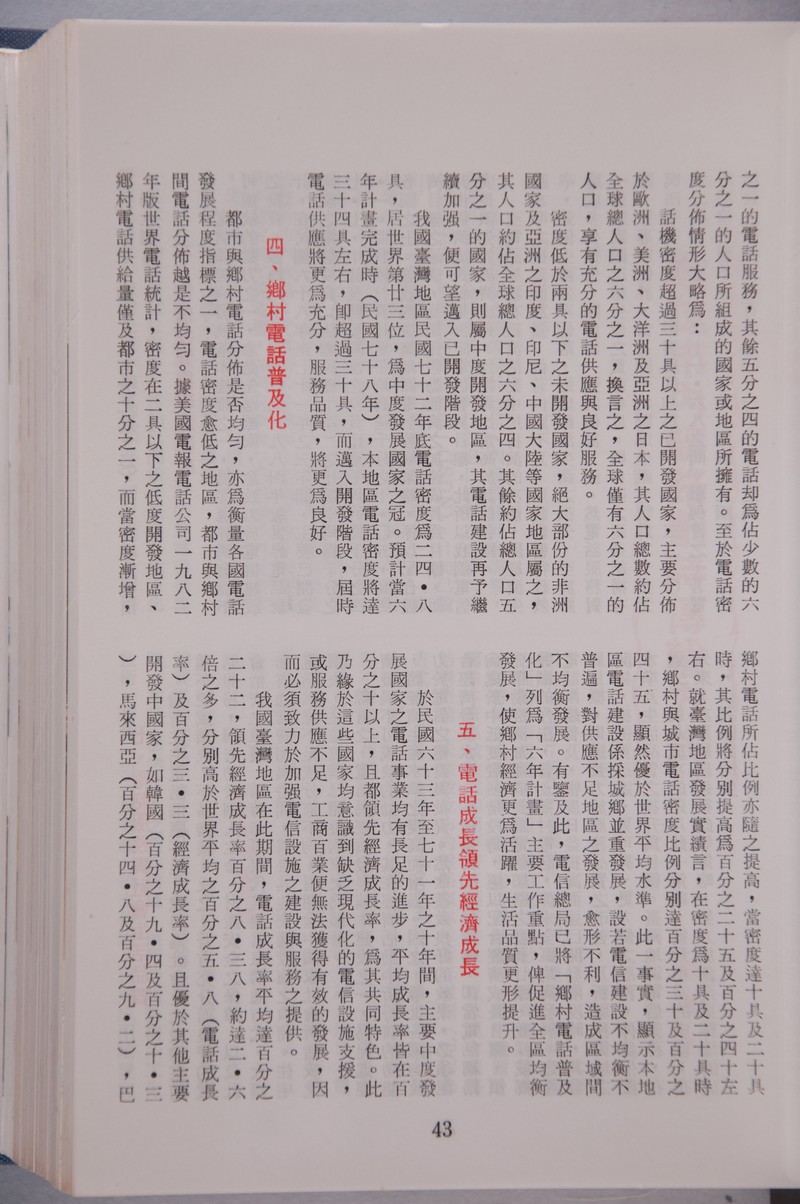 之一的電話服務，其餘五分之四的電話却爲佔少數的六
分之一的人口所組成的國家或地區所擁有。至於電話密
度分佈情形大略爲：
話機密度超過三十具以上之已開發國家，主要分佈
於歐洲、美洲、大洋洲及亞洲之日本，其人口總數約佔
全球總人口之六分之一，換言之，全球僅有六分之一的
人口，享有充分的電話供應與良好服務。
密度低於兩具以下之未開發國家，絕大部份的非洲
國家及亞洲之印度、印尼、中國大陸等國家地區屬之，
其人口約佔全球總人口之六分之四。其餘約佔總人口五
分之一的國家，則屬中度開發地區，其電話建設再予繼
續加强，便可望邁入已開發階段。
我國臺灣地區民國七十二年底電話密度爲二四•八
具，居世界第廿三位，爲中度發展國家之冠。預計當六
年計畫完成時（民國七十八年），本地區電話密度將達
三十四具左右，卽超過三十具，而邁入開發階段，屆時
電話供應將更爲充分，服務品質，將更爲良好。
四、鄉村電話普及化
都市與鄉村電話分佈是否均勻，亦爲衡量各國電話
發展程度指標之一，電話密度愈低之地區，都市與鄉村
間電話分佈越是不均勻。據美國電報電話公司一九八二
年版世界電話統計，密度在二具以下之低度開發地區、
鄉村電話供給量僅及都市之十分之一，而當密度漸增，
鄉村電話所佔比例亦隨之提高，當密度達十具及二十具
時，其比例將分別提高爲百分之二十五及百分之四十左
右。就臺灣地區發展實績言，在密度爲十具及二十具時
，鄉村與城市電話密度比例分別達百分之三十及百分之
四十五，顯然優於世界平均水準。此一事實，顯示本地
區電話建設係採城鄉並重發展，設若電信建設不均衡不
普遍，對供應不足地區之發展，愈形不利，造成區域間
不均衡發展。有鑒及此，電信總局已將「鄉村電話普及
化」列爲「六年計畫」主要工作重點，俾促進全區均衡
發展，使鄉村經濟更爲活躍，生活品質更形提升。
五、電話成長領先經濟成長
於民國六十三年至七十一年之十年間，主要中度發
展國家之電話事業均有長足的進步，平均成長率皆在百
分之十以上，且都領先經濟成長率，爲其共同特色。此
乃緣於這些國家均意識到缺乏現代化的電信設施支援，
或服務供應不足，工商百業便無法獲得有效的發展，因
而必須致力於加强電信設施之建設與服務之提供。
我國臺灣地區在此期間，電話成長率平均達百分之
二十二，領先經濟成長率百分之八•三八，約達二•六
倍之多，分別高於世界平均之百分之五•八（電話成長
率）及百分之三•三（經濟成長率）。且優於其他主要
開發中國家，如韓國（百分之十九•四及百分之十•三
），馬來西亞（百分之十四•八及百分之九•二），巴
43